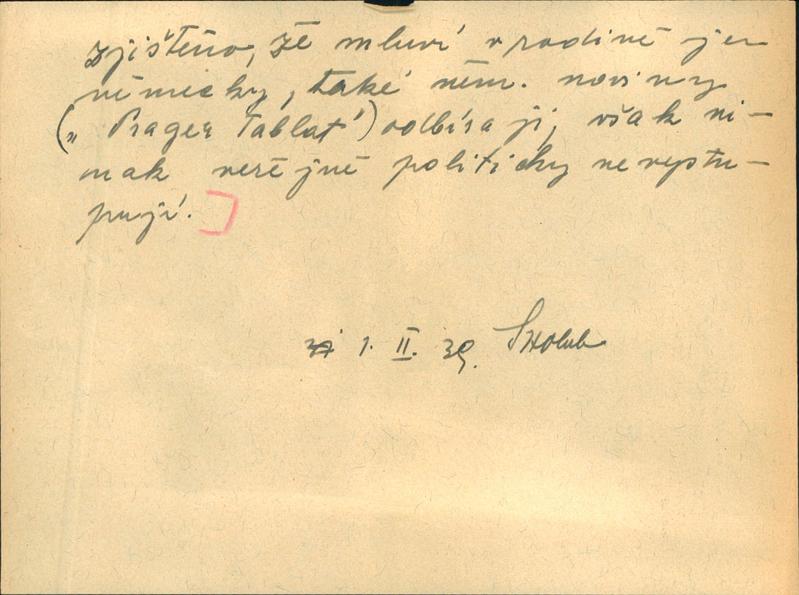 zjištěno, že mluví v rodině jen
německy, také něm. noviny
(„Prager Tablat") odbírají, však ni-
mak veřejně politicky nevystu-
pují.
1. II. 39.